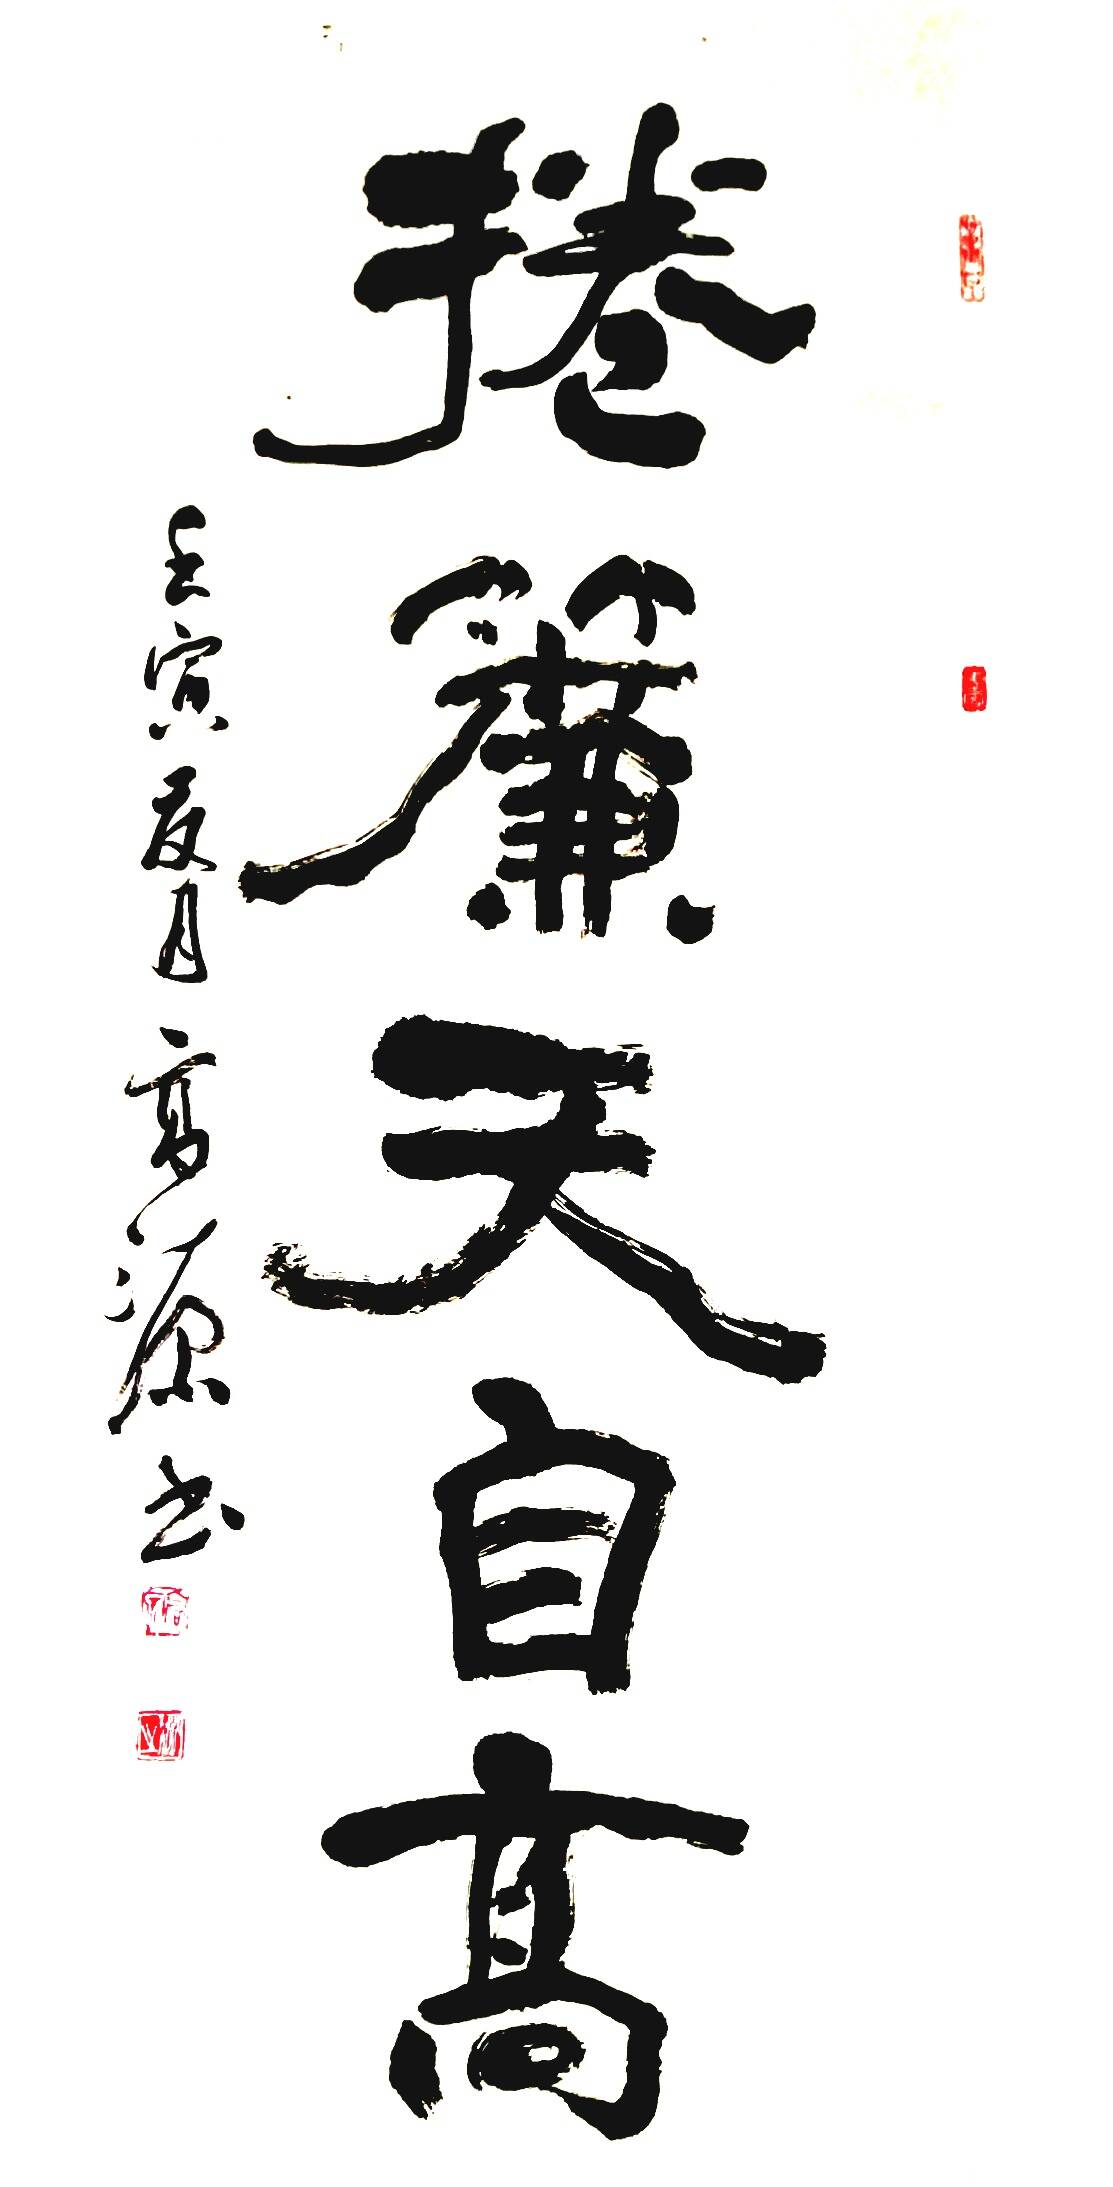 捲簾天自髙
壬寅夏月高源书